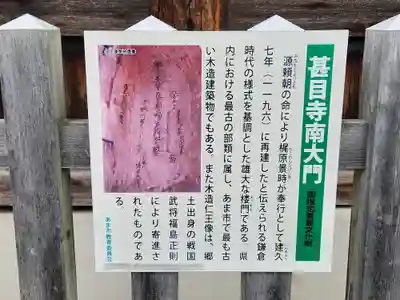 甚目寺南大門
国指定重要文化財
源頼朝の命により梶原景時が奉行として建久
七年（一一九六）に再建したと伝えられる鎌倉
時代の様式を基調とした雄大な楼門である 県
内における最古の部類に属し、あま市で最も古
い木造建築物でもある。また木造仁王像は、郷
土出身の戦国
武将福島正則
により寄進さ
れたものであ
る。
あま市教育委員会